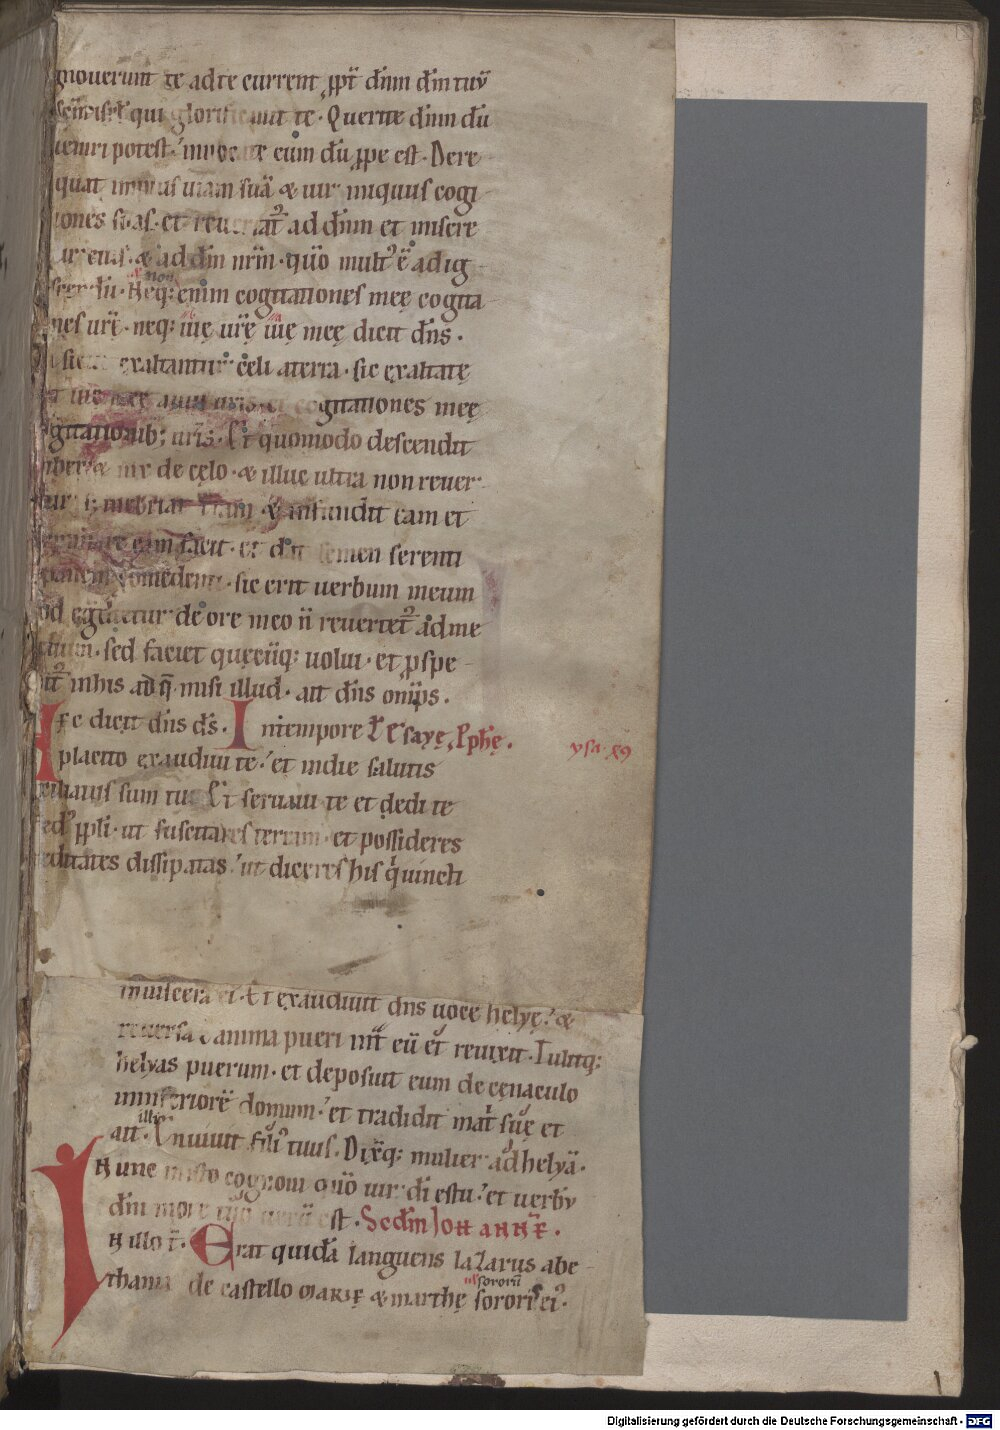 gnouerunt te ad te current ꝓpt̄ dn̄m dm̄ tuū
sc̄m isrl̄ qui glorificauit te. Querite dn̄m dū
ueniri potest. inuocate eum dū ꝓpe est. Dere
quat impius uiam suā & uir iniquus cogi
tiones suas. et reuertat᷒ ad dn̄m et misere
ur eius. & ad dm̄ nr̄m. quō mult᷒ ē ad ig
dū. Neq; enim cogitationes meę cogita
nes urę̄. neq; uię urę̄ uię meę dicit dn̄s.
sicut exaltantur cęli a terra. sic exaltatę
t uię meę a uiis uris. et cogitationes meę
gitationib; uris. Et quomodo descendit
imber & nix de cęlo. & illuc ultra non reuer
tur s; inebriat tram & infundit eam et
germinare eam facit. et dat semen serenti
panem comedenti. sic erit uerbum meum
od egdietur de ore meo n̄ reuertet᷒ ad me
cuum. sed faciet quęcūq; uolui. et ꝓspe
it᷒ in his ad q̄ misi illud. ait dn̄s omp̄s.
Hęc dicit dn̄s ds̄. In tempore Esayę Pphę.
ysa. xl9
placito exaudiui te. et in die salutis
xiliatus sum tui. Et seruaui te et dedi te
fed᷒ ppli. ut suscitares terram. et possideres
editates dissipatas. ut diceres his q̇ uincti
in uiscera ei. Et exaudiuit dn̄s uocē helyę. &
reuersa ē anima pueri int̄ eū et reuixit. Tulitq;
helyas puerum. et deposuit eum de cęnaculo
in inferiorē domum. et tradidit mat̄ suę et
illi
ait. En uiuit fili᷒ tuus. Dixq; mulier ad helyā.
Nunc in isto cognoui quō uir di es tu. et uerbū
dm̄ in ore tuo uerū est. Scdm Iohannē.
In illo t̄. Erat quidā languens lazarus a be
sororū
thania de castello marię & marthę soroȓ ei᷒.
Digitalisierung gefördert durch die Deutsche Forschungsgemeinschaft - DFG